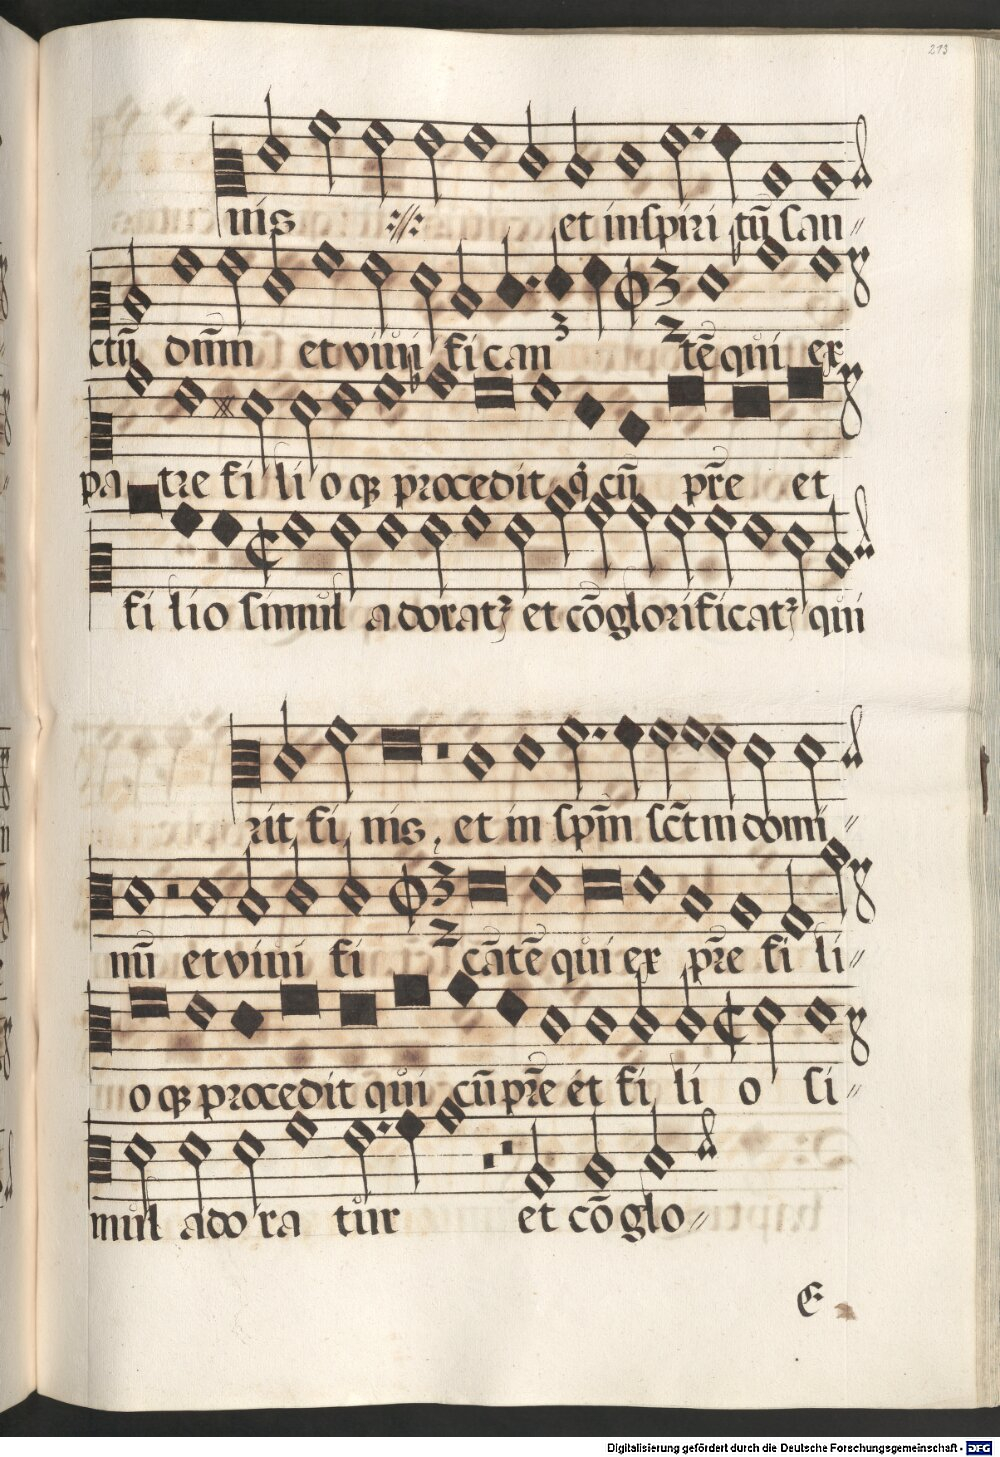 213
nis ://: et inspiri tū san//
ctū dn̄m et vivi fican tē qui ex
3
3
2
pa tre fi li o qꝫ procedit q̇ cū pr̄e et
fi li o simul a doratꝫ et cō glorificatꝫ qui
rit fi nis, et in sp̄m sc̄tm domi//
nū et vivi fi cātē qui ex pr̄e fi li//
3
2
o qꝫ procedit qui cū pr̄e et fi li o si//
mul ado ra tur et cō glo//
E
Digitalisierung gefördert durch die Deutsche Forschungsgemeinschaft - DFG